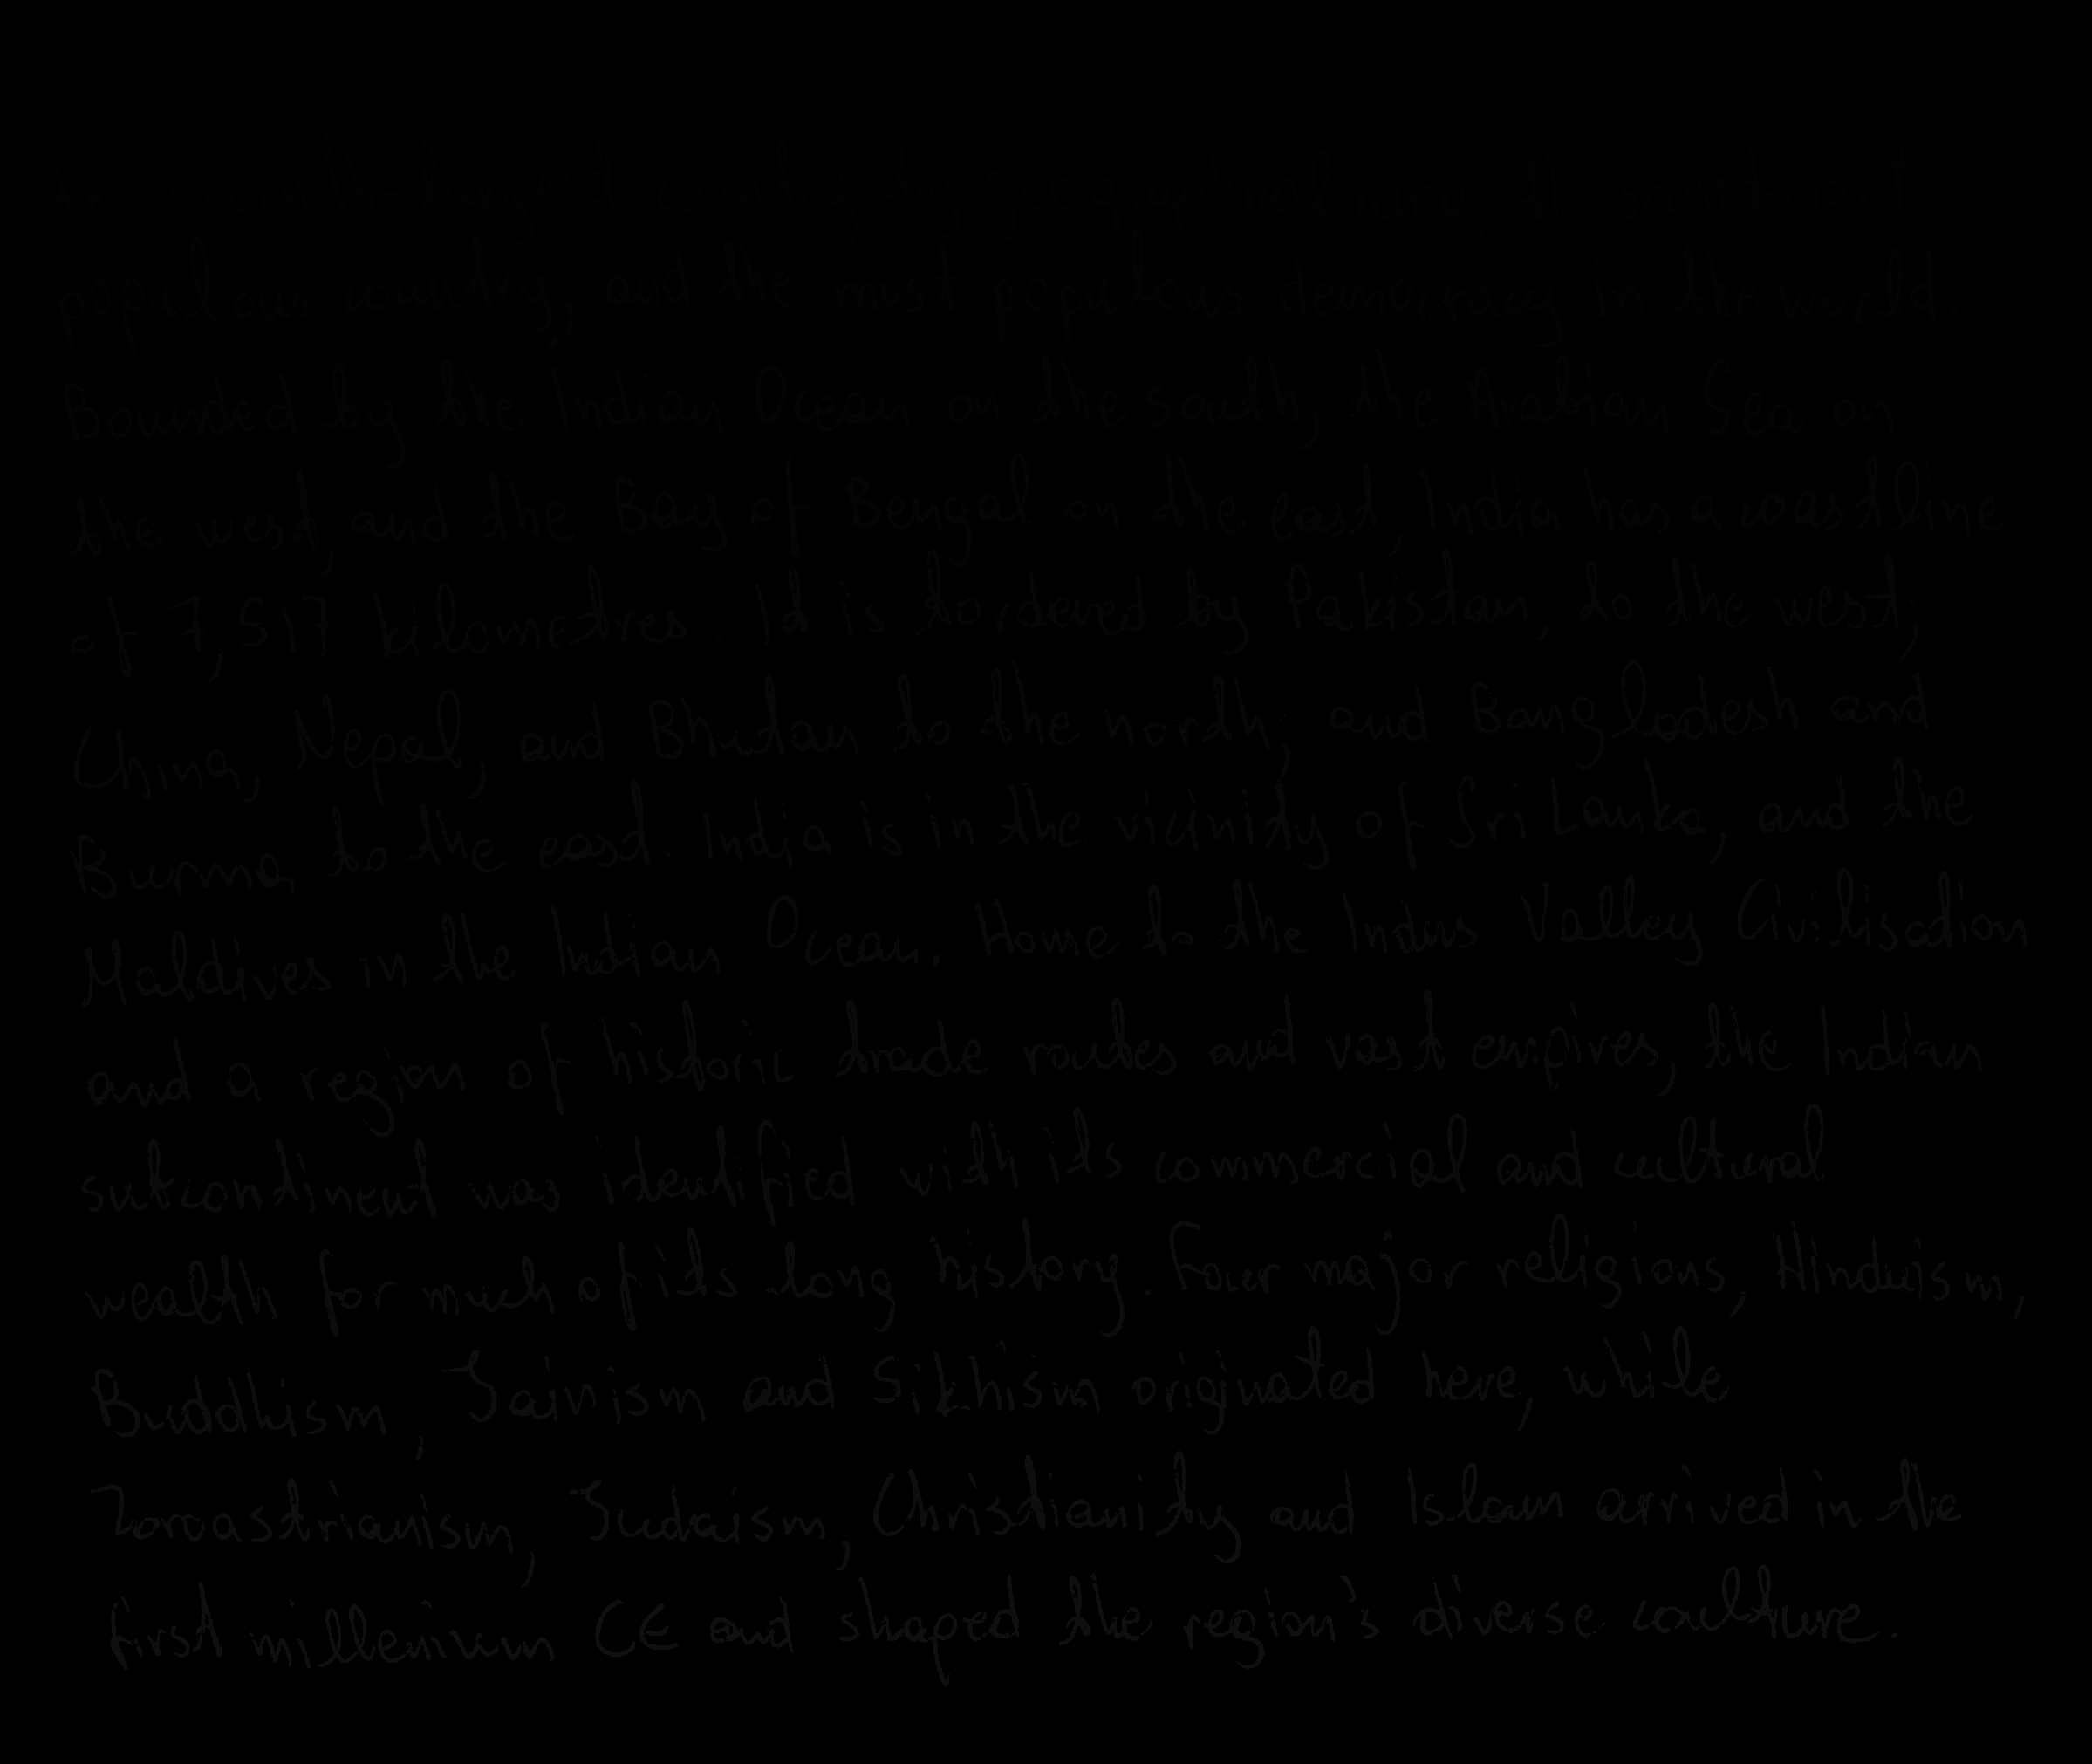 India, officially the Republic of India, is a country in South Asia. It is
the seventh-largest country by geographical area, the second-most
populous country, and the most populous democracy in the world.
Bounded by the Indian Ocean on the south, the Arabian Sea on
the west, and the Bay of Bengal on the east, India has a coastline
of 7,517 kilometres. It is bordered by Pakistan, to the west;
China, Nepal, and Bhutan to the north; and Bangladesh and
Burma to the east. India is in the vicinity of Sri Lanka, and the
Maldives in the Indian Ocean. Home to the Indus Valley Civilisation
and a region of historic trade routes and vast empires, the Indian
subcontinent was identified with its commercial and cultural
wealth for much of its long history. Four major religions, Hinduism,
Buddhism, Jainism and Sikhism originated here, while
Zoroastrianism, Judaism, Christianity and Islam arrived in the
first millenium CE and shaped the region's diverse coulture.